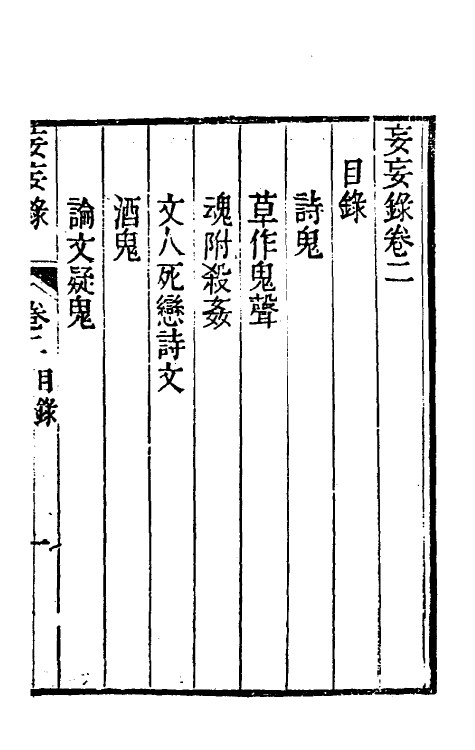 妄妄錄卷二
目錄
詩鬼
草作鬼聲
魂附殺姦
文人死戀詩文
酒鬼
論文疑鬼
妄妄錄 卷二目錄 一